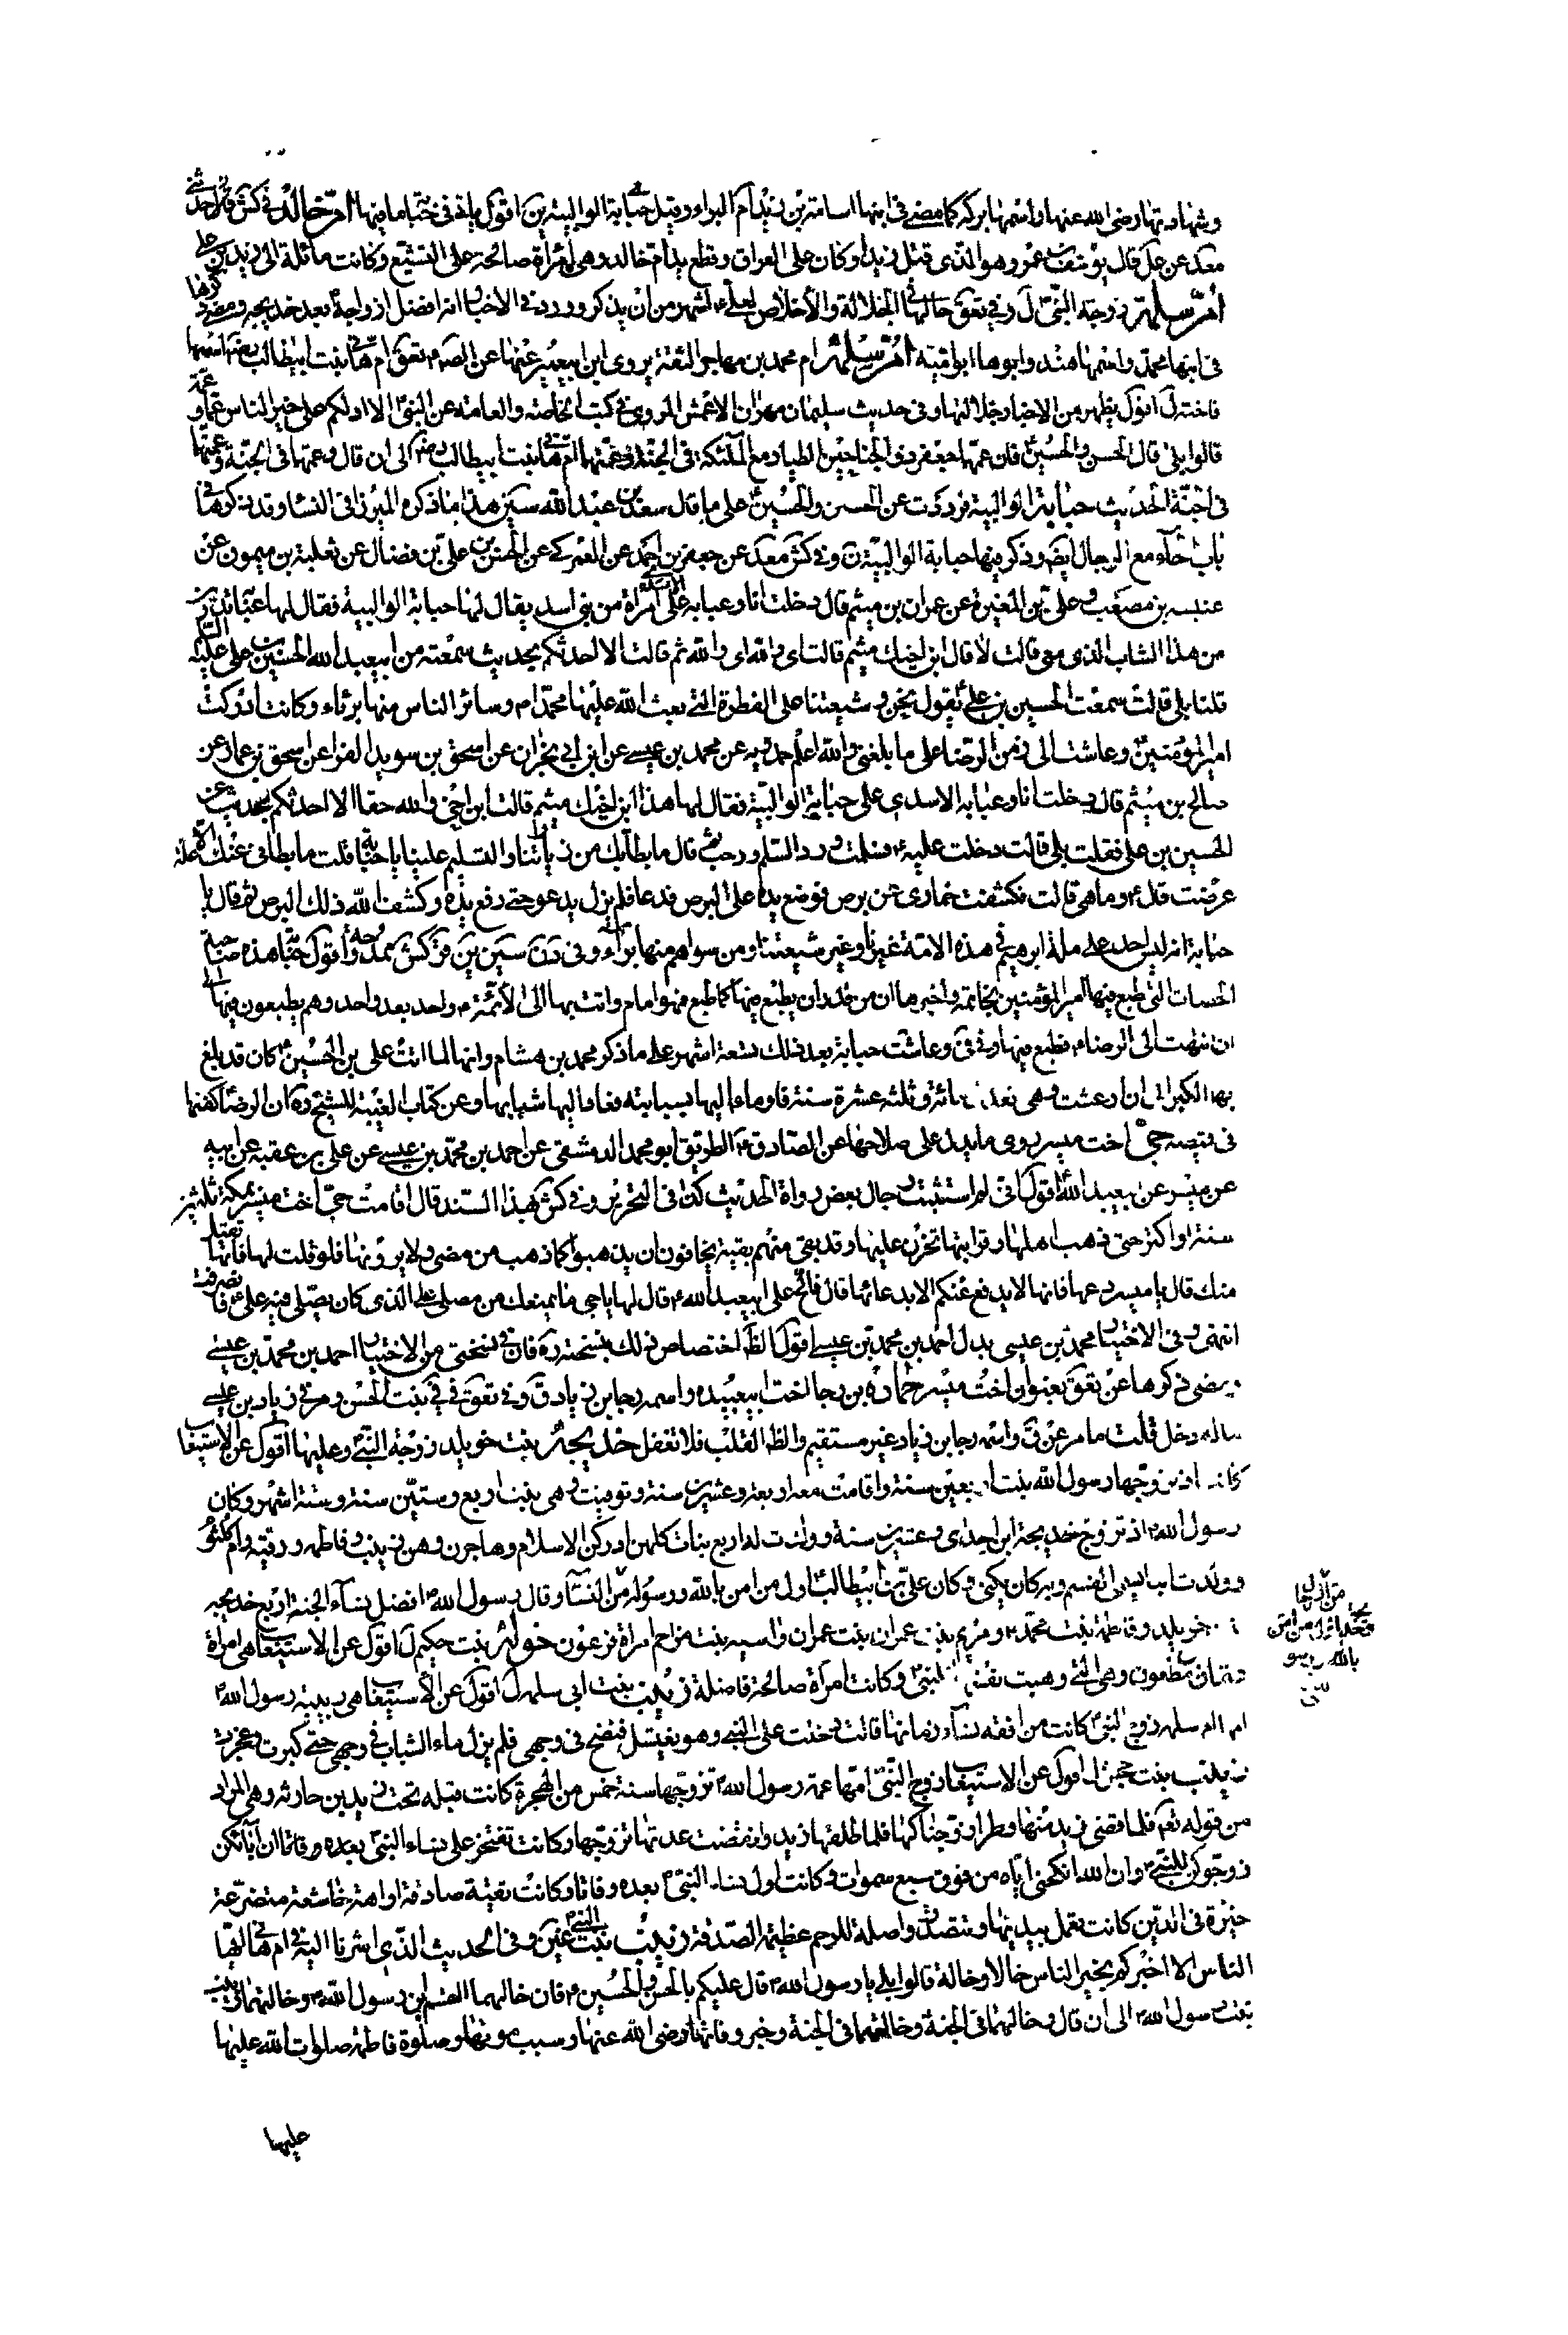 وشهادتها رضى الله عنها واسمها بركة كما مضى فى ابنها اسامة بن زيد ام البراء وقيل حبابة الوالبية ين اقول ياتى فى حبابة ما فيها ام خالد فى كش قال حدثنى
معد عن جل قال يوسف بن عمر هو الذى قتل زيدا وكان على العراق وقطع يد ام خالد وهى امرأة صالحة على التشيع وكانت مائلة الى زيد بن على
ام سلمة زوجة النبى ل وفى تعق حالها فى الجلالة والاخلاص لعلى اشهر من ان يذكر وورد فى الاخبار انها افضل ازواجه بعد خديجة ومضى ذكرها
فى ابنها محمد واسمها هند وابوها ابو امية ام سلمة ام محمد بن مهاجر الثقة يروى ابن ابيعمير عنها عن الصم تعق ام هانى بنت ابيطالب رضها اسمها
فاخته ل اقول يظهر من الاخبار جلالتها وفى حديث سليمان مهران الاعمش المروى فى كتب الخاصة والعامة عن النبى الا ادلكم على خير الناس عما وعمة
قالوا بلى قال الحسن والحسين فان عمهما جعفر ذى الجناحين الطيار مع الملئكة فى الجنة وعمتهما ام هانى بنت ابيطالب رضه الى ان قال وعمهما فى الجنة وعمتهما
فى الجنة الحديث حبابة الوالبية فرد دت عن الحسن والحسين على ما قال سعد بن عبد الله سين هذا ما ذكره الميرزا فى النساء وقد ذكرها فى
باب خآء مع الرجال ايضه وذكر فيها حبابة الوالبية ن وفى كش معد عن جعفر بن احمد عن العمركى عن الحسن بن على بن فضال عن ثعلبة بن ميمون عن
عنبسه بن مصعب وعلى بن المغيرة عن عمران بن ميثم قال دخلت انا وعبايه الاسدى على امرأة من بنى اسد يقال لها حبابة الوالبية فقال لها عباية تدرين
من هذا الشاب الذى معى قالت لا قال ابن اخيك ميثم قالت اى والله اى والله ثم قالت الا احدثكم بحديث سمعته من ابيعبد الله الحسين بن على عليه السلام
قلنا بلى قالت سمعت الحسين بن على يقول نحن وشيعتنا على الفطرة التى بعث الله عليها محمدا م وسائر الناس منها براء وكانت ادركت
امير المؤمنين وعاشت الى زمن الرضا على ما بلغنى والله اعلم حمدويه عن محمد بن عيسى عن ابن ابى نجران عن اسحق بن سويد الفراء عن اسحق بن عمار عن
صالح بن ميثم قال دخلت انا وعبايه الاسدى على حبابة الوالبية فقال لها هذا ابن اخيك ميثم قالت ابن اخى والله حقا الا احدثكم بحديث عن
الحسين بن على فقلت بلى قالت دخلت عليه فسلمت ورد السلم ورحب ثم قال ما بطأ بك من زيارتنا والتسليم علينا يا حبابة قلت ما بطأنى عنك الا علة
عرضت قال وما هى قالت فكشفت خمارى عن برص فوضع يده على البرص فدعا فلم يزل يدعو حتى رفع يده وكشف الله ذلك البرص ثم قال يا
حبابة انه ليس احد على ملة ابرهيم فى هذه الامة غيرنا وغير شيعتنا ومن سواهم منها براء وفى
الحصات التى طبع فيها امير المؤمنين بخاتمه واخبرها ان من قدر ان يطبع فيها كما طبع فهو امام واتت بها الى الائمة واحد بعد واحد وهم يطبعون فيها الى
ان انتهت الى الرضا فطبع فيها وعاشت حبابة بعد ذلك تسعة اشهر على ما ذكر محمد بن هشام وانها لما اتت على بن الحسين كان قد بلغ
بها الكبر الى ان ارعشت وهى تعد مائة وثلثه عشرة سنة فاومأ اليها بسبابته فعاد اليها شبابها وعن كتاب الغيبة للشيخ ره ان الرضا كفنها
فى قميصه حبى اخت ميسر روى ما يدل على صلاحها عن الصادق الطريق ابو محمد الدمشقى عن احمد بن محمد بن عيسى عن على بن عقبة عن ابيه
عن ميسر عن ابيعبد الله اقول انى لم استثبت رجال بعض رواة الحديث كذا فى التحرير وفى كش بهذا السند قال اقامت حبى اخت ميسر بمكة ثلثين
سنة او اكثر حتى ذهب اهلها وقرابتها تحزن عليها وقد بقى منهم بقية يخافون ان يذهبوا كما ذهب من مضى ولا يرونها فلو قلت لها فانها تقبل
منك قال يا ميسر دعها فانها لا يدفع عنكم الا بدعائها قال فالح على ابيعبد الله قال لها يا حبى ما يمنعك من مصلى على الذى كان يصلى فيه على فانصرفت
انتهى وفى الاختيار محمد بن عيسى بدل احمد بن محمد بن عيسى اقول الظه اختصاص ذلك بنسخته ره فان فى نسختى من الاختيار احمد بن محمد بن عيسى
ومضى ذكرها عن تعق بعنوان اخت ميسر حماده بن رجا اخت ابيعبيده واسمه رجا بن زياد ق وفى تعق فى بنت الحسن ومر فى زياد بن عيسى
ماله دخل قلت ما مر عن ق واسمه رجا بن زياد غير مستقيم والظه القلب فلا تغفل خديجة بنت خويلد زوجة النبى وعليها اقول عن الاستيعاب
كانت اذ تزوجها رسول الله بنت اربعين سنة واقامت معه اربعة وعشرين سنة وتوفيت وهى بنت اربع وستين سنة وستة اشهر وكان
رسول الله اذ تزوج خديجة ابن احدى وعشرين سنة وولدت له اربع بنات كلهن ادركن الاسلام وهاجرن وهن زينب وفاطمه ورقية وام كلثوم
وولدت له ابنا يسمى القسم وبه كان يكنى وكان على بن ابيطالب اول من امن بالله ورسوله من النساء وقال رسول الله افضل نساء الجنة اربع خديجه
بنت خويلد وفاطمة بنت محمد ومريم بنت عمران بنت عمران واسيه بنت مزاحم امرأة فرعون خولة بنت حكيم ل اقول عن الاستيعاب هى امرأة
عثمان بن مظعون وهى التى وهبت نفسها للنبى وكانت امرأة صالحة فاضلة زينب بنت ابى سلمه ل اقول عن الاستيعاب هى ربيبة رسول الله
امها ام سلمه زوج النبى كانت من افقه نساء زمانها قالت دخلت على النبى وهو يغتسل فنضح فى وجهى فلم يزل ماء الشباب فى وجهى حتى كبرت وعجزت
زينب بنت جحش ل اقول عن الاستيعاب زوج النبى امها عمة رسول الله تزوجها سنة خمس من الهجرة كانت قبله تحت زيد بن حارثه وهى المراد
من قوله تعه فلما قضى زيد منها وطرا زوجناكها فلما طلقها زيد وانقضت عدتها تزوجها وكانت تفتخر على نساء النبى بعده وقائلة ان آبائكن
زوجوكن للنبى وان الله انكحنى اياه من فوق سبع سموات وكانت اول نساء النبى بعده وفاتا وكانت تقية صادقة اواهة خاشعة متضرعة
خيرة فى الدين كانت تعمل بيديها وتتصدق واصلة للرحم عظيمة الصدقة زينب بنت النبى وفى الحديث الذى اشرنا اليه فى ام هانى ايها
الناس الا اخبركم بخير الناس خالا وخالة قالوا بلى يا رسول الله قال عليكم بالحسن والحسين فان خالهما القسم ابن رسول الله وخالتهما زينب
بنت رسول الله الى ان قال وخالهما فى الجنة وخالتهما فى الجنة وخبر وفاتها رضى الله عنها وسبب موتها وصلوة فاطمة صلوات الله عليها
عليها